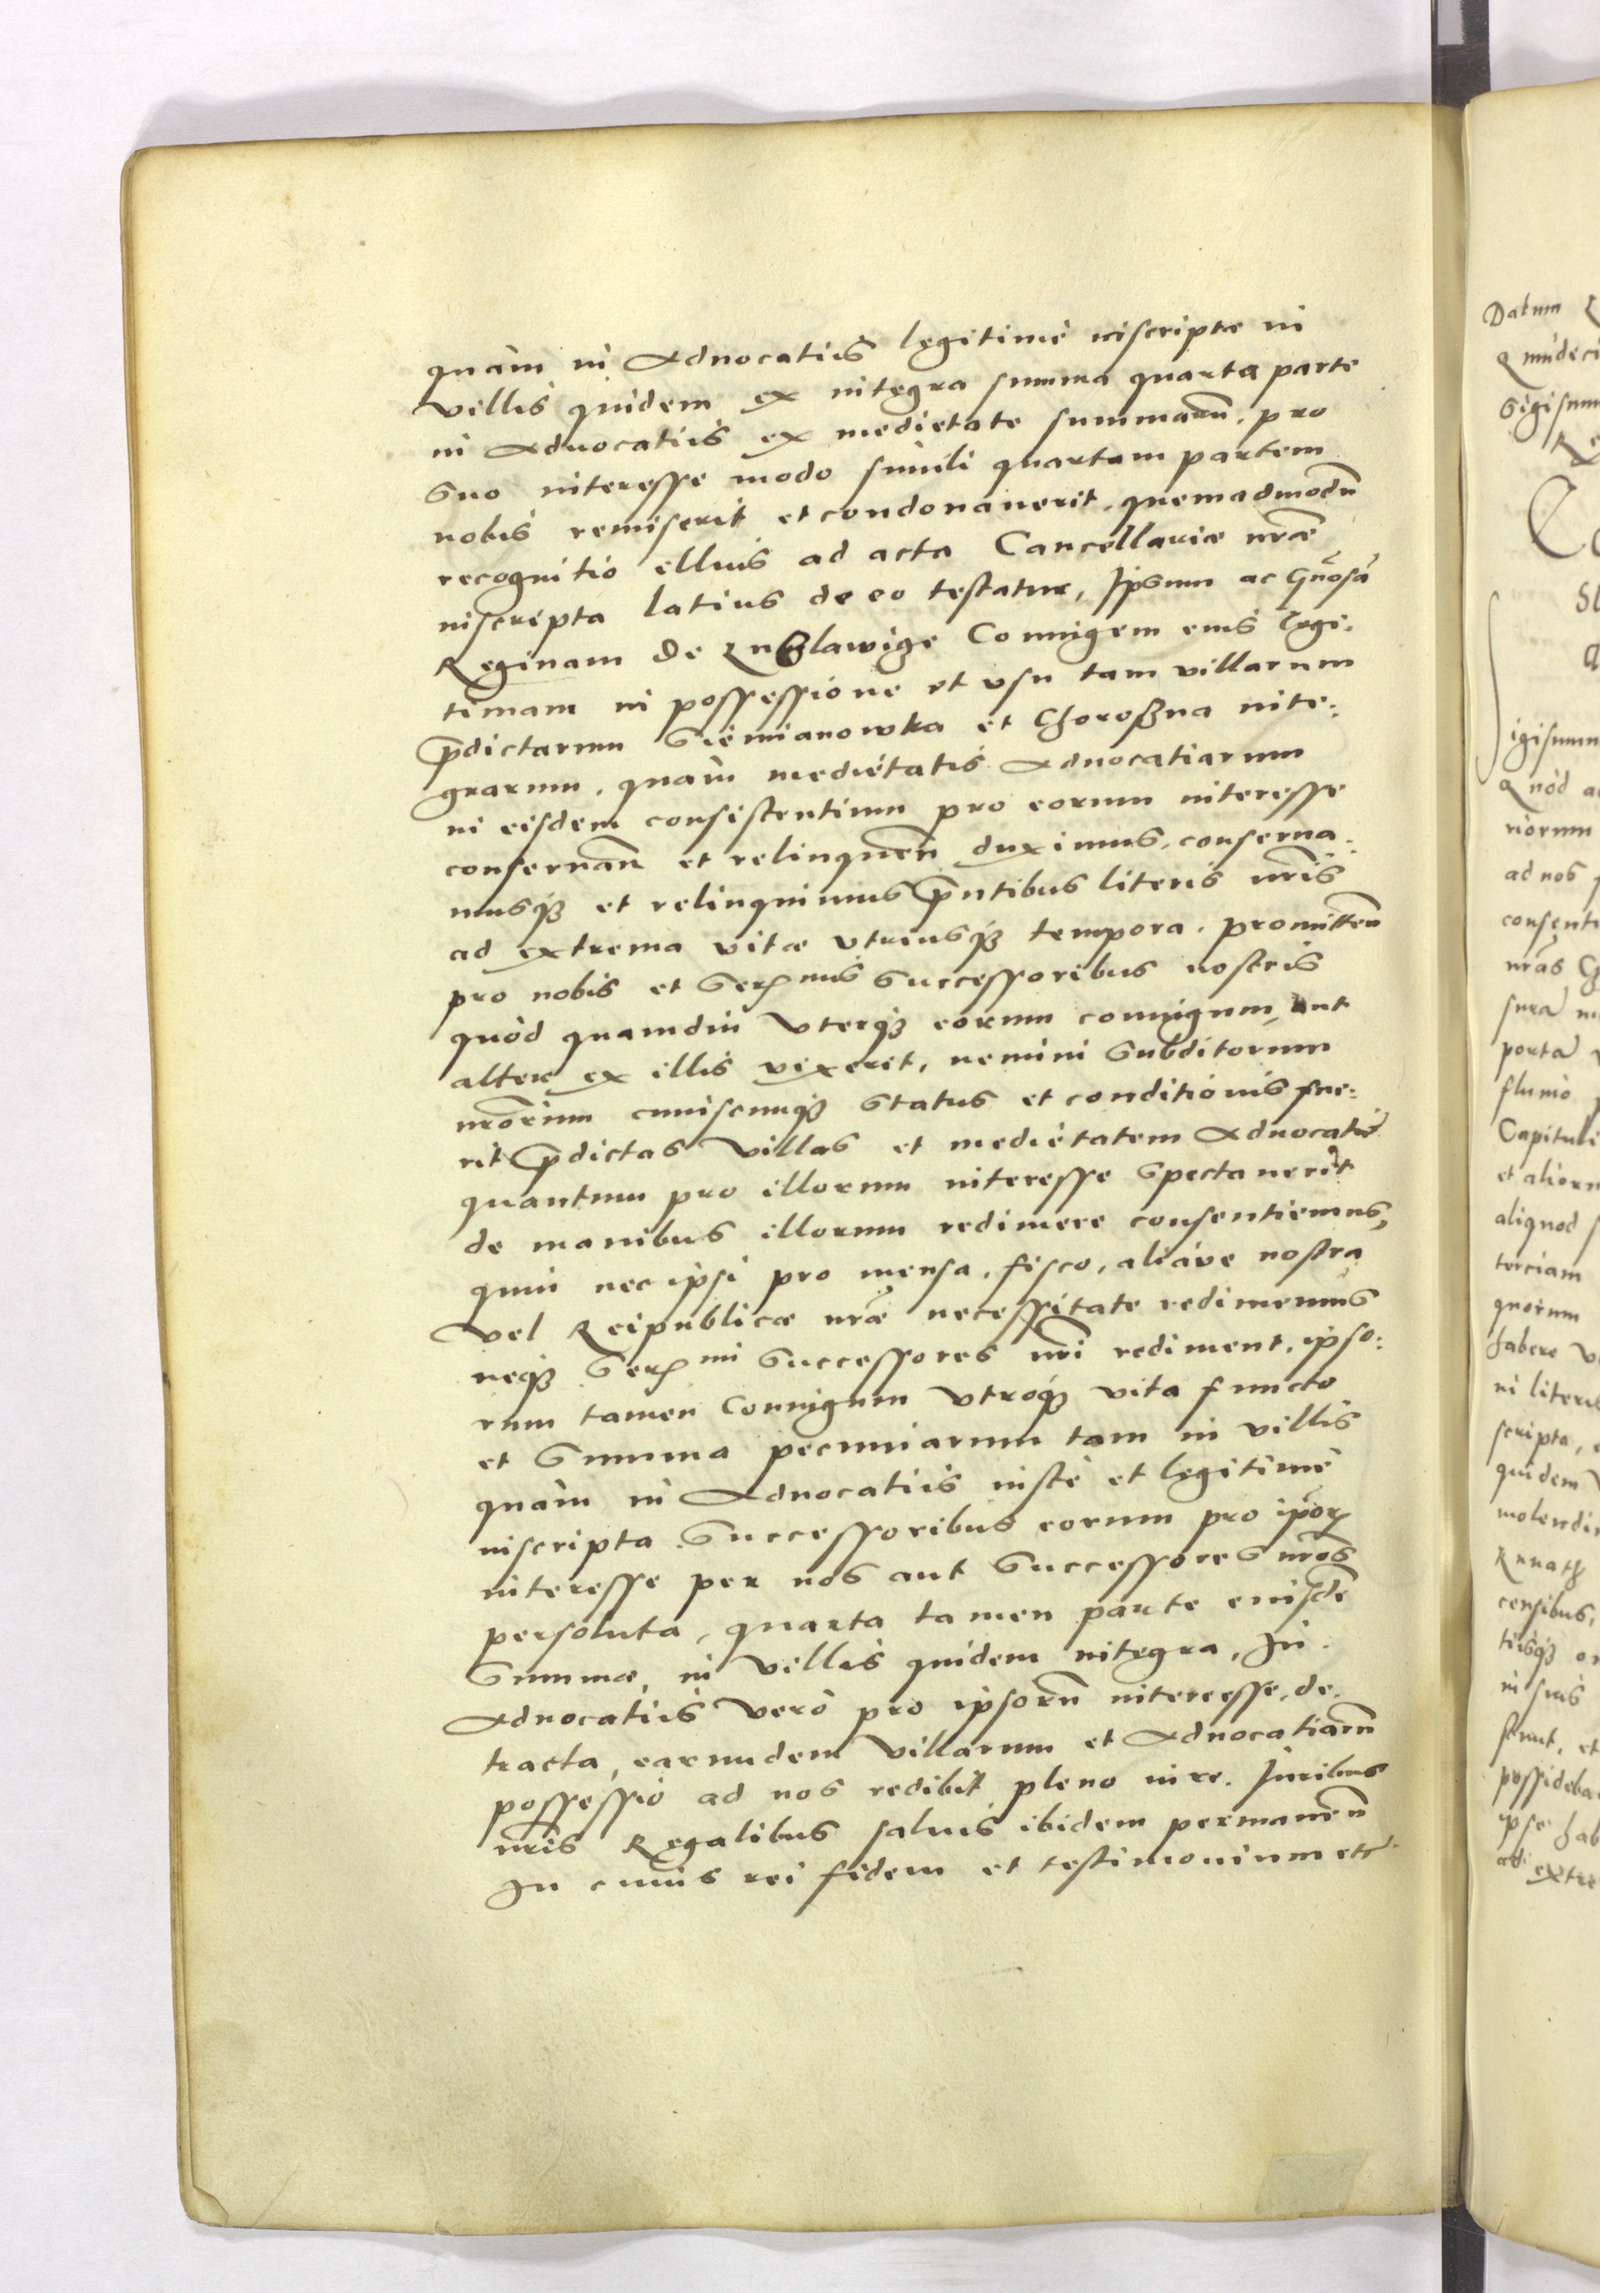 quàm in Aduocatiis legitimè inscriptæ in
Villis quidem ex integra summa quarta parte
in Aduocatiis ex medietate summarũ, pro
Suo interesse modo simili quartam partem
nobis remiserit et condonauerit, quemadmodũ
recognitio illius ad acta Cancellariæ nr̃æ
inscripta latius de eo testatur, Ipsum ac Gñosã
Reginam de Coniugem eius legi-
timam in possessione et vsu tam villarum
p̃dictarum Siemianowka et Choroszna inte-
grarum, quàm medietatis Aduocatiarum
in eisdem consistentium pro eorum interesse
conseruañ et relinqueñ duximus, conserua-
musq₃ et relinquimus p̃ntibus literis nr̃is
ad extrema vitæ vtriusq₃ tempora. promitteñ
pro nobis et Ser^mis Successoribus nostris
quòd quamdiu Vterq₃ eorum coniugum, aut
alter ex illis vixerit, nemini Subditorum
nr̃orum cuiuscunq₃ Status et conditionis fue-
rit p̃dictas Villas et medietatem Aduocatiæ
quantum pro illorum interesse Spectauerit
de manibus illorum redimere consentiemus,
quin nec ipsi pro mensa, fisco, aliáve nostra
Vel Reipublicæ nr̃æ necessitate redimemus
neq₃ Ser^mi Successores nr̃i rediment, ipso-
rum tamen Coniugum Vtroq₃ vita functo
et Summa pecuniarum tam in villis
quàm in Aduocatiis iustè et legitimè
inscripta Successoribus eorum pro ip̃or
interesse per nos aut Successores nr̃os
persoluta, quarta tamen parte eiusdẽ
Summæ, in Villis quidem integra, In
Aduocatiis verò pro ipsorũ interesse, de-
tracta, earundem Villarum et Aduocatiarũ
possessio ad nos redibit pleno iure. Iuribus
nr̃is Regalibus saluis ibidem permaneñ
In cuius rei fidem et testimonium etc
Datum
Sigismun
igismun
Quòd a
riorum
ad nos
consenti
nr̃as
porta
fluuio
Capituli
et alior
aliquod
terciam
quorum
habere
in liter
scripta,
quidem
molendi
censibus,
in suis
possideba
ipse hab
ad extre